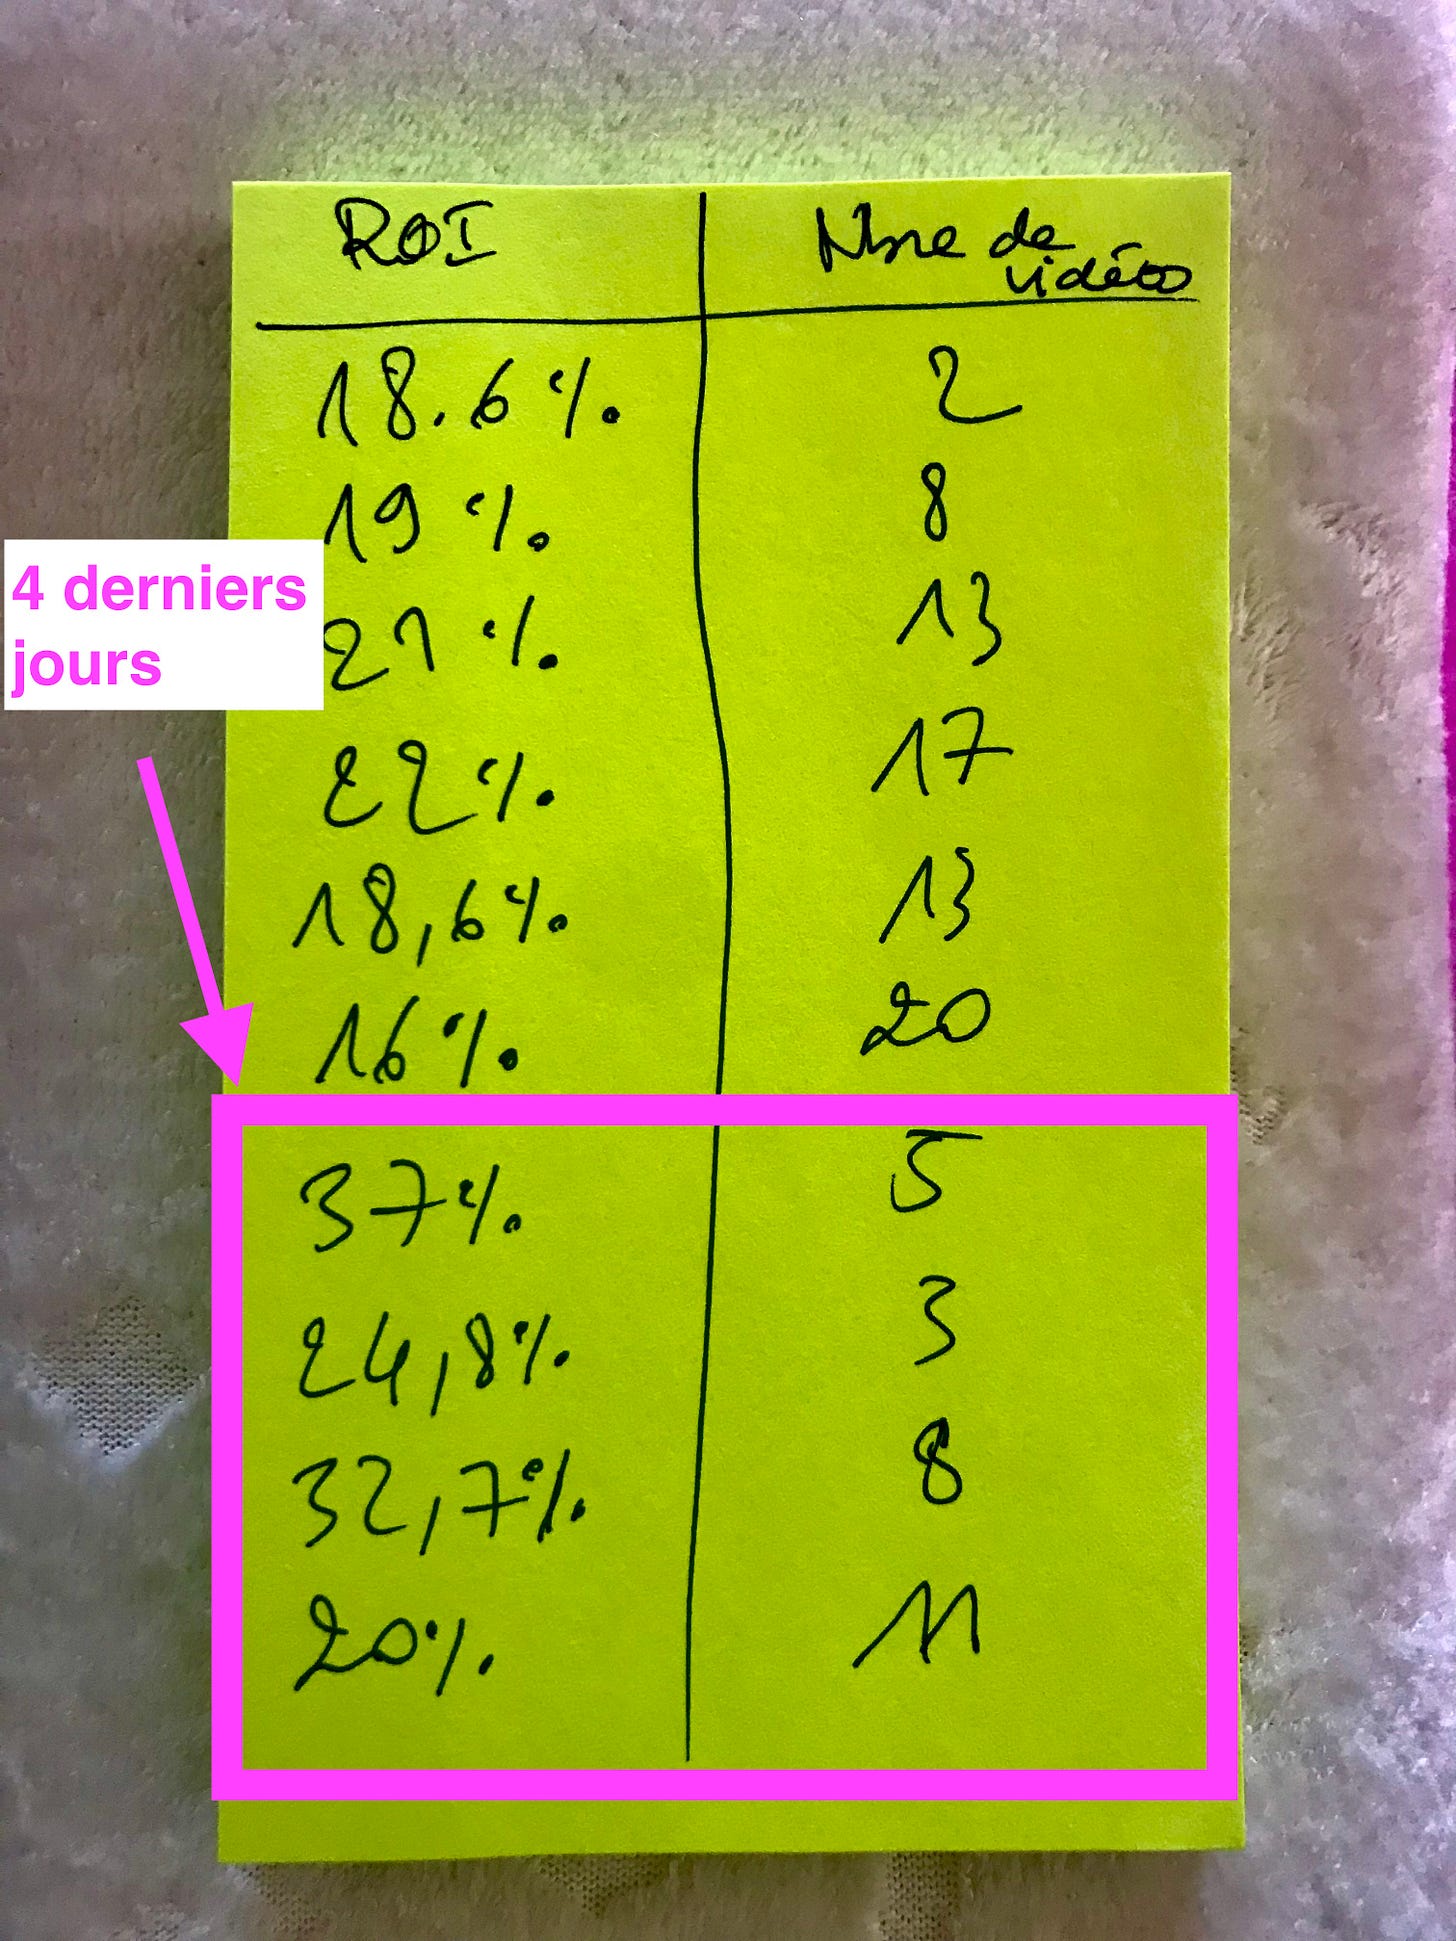 ROI Nbre de
vidéos
18.6 % 2
19 % 8
4 derniers
jours
21 % 13
22 % 17
18,6 % 13
16 % 20
37 % 5
24,8 % 3
32,7 % 8
20 % 11